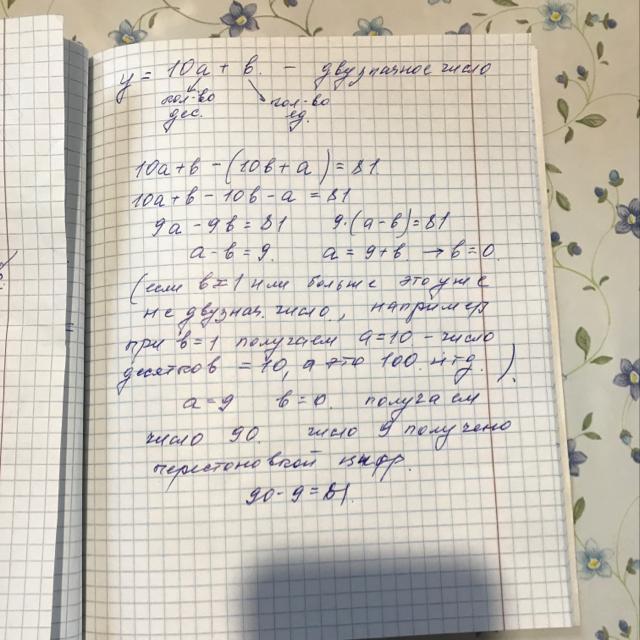 y = 10a + b. - двузначное число
кол-во кол-во
дес. ед.
10a+b-(10b+a)=81
10a+b-10b-a=81
9a-9b=81 9·(a-b)=81
a-b=9. a=9+b. → b=0.
(если b=1 или больше это уже
не двузнач. число, например
при b=1 получаем a=10 - число
десятков =10, а это 100 и т д.)
a=9 b=0. получаем
число 90. число 9 получено
перестановкой цифр.
90-9=81.